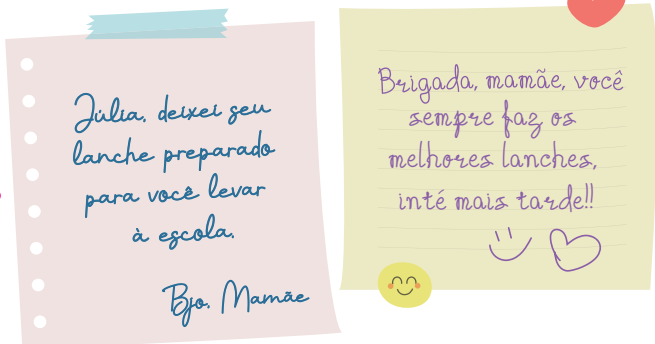 Júlia, deixei seu
lanche preparado
para você levar
à escola.
Bjo. Mamãe
Brigada, mamãe, você
sempre faz os
melhores lanches,
inté mais tarde!!